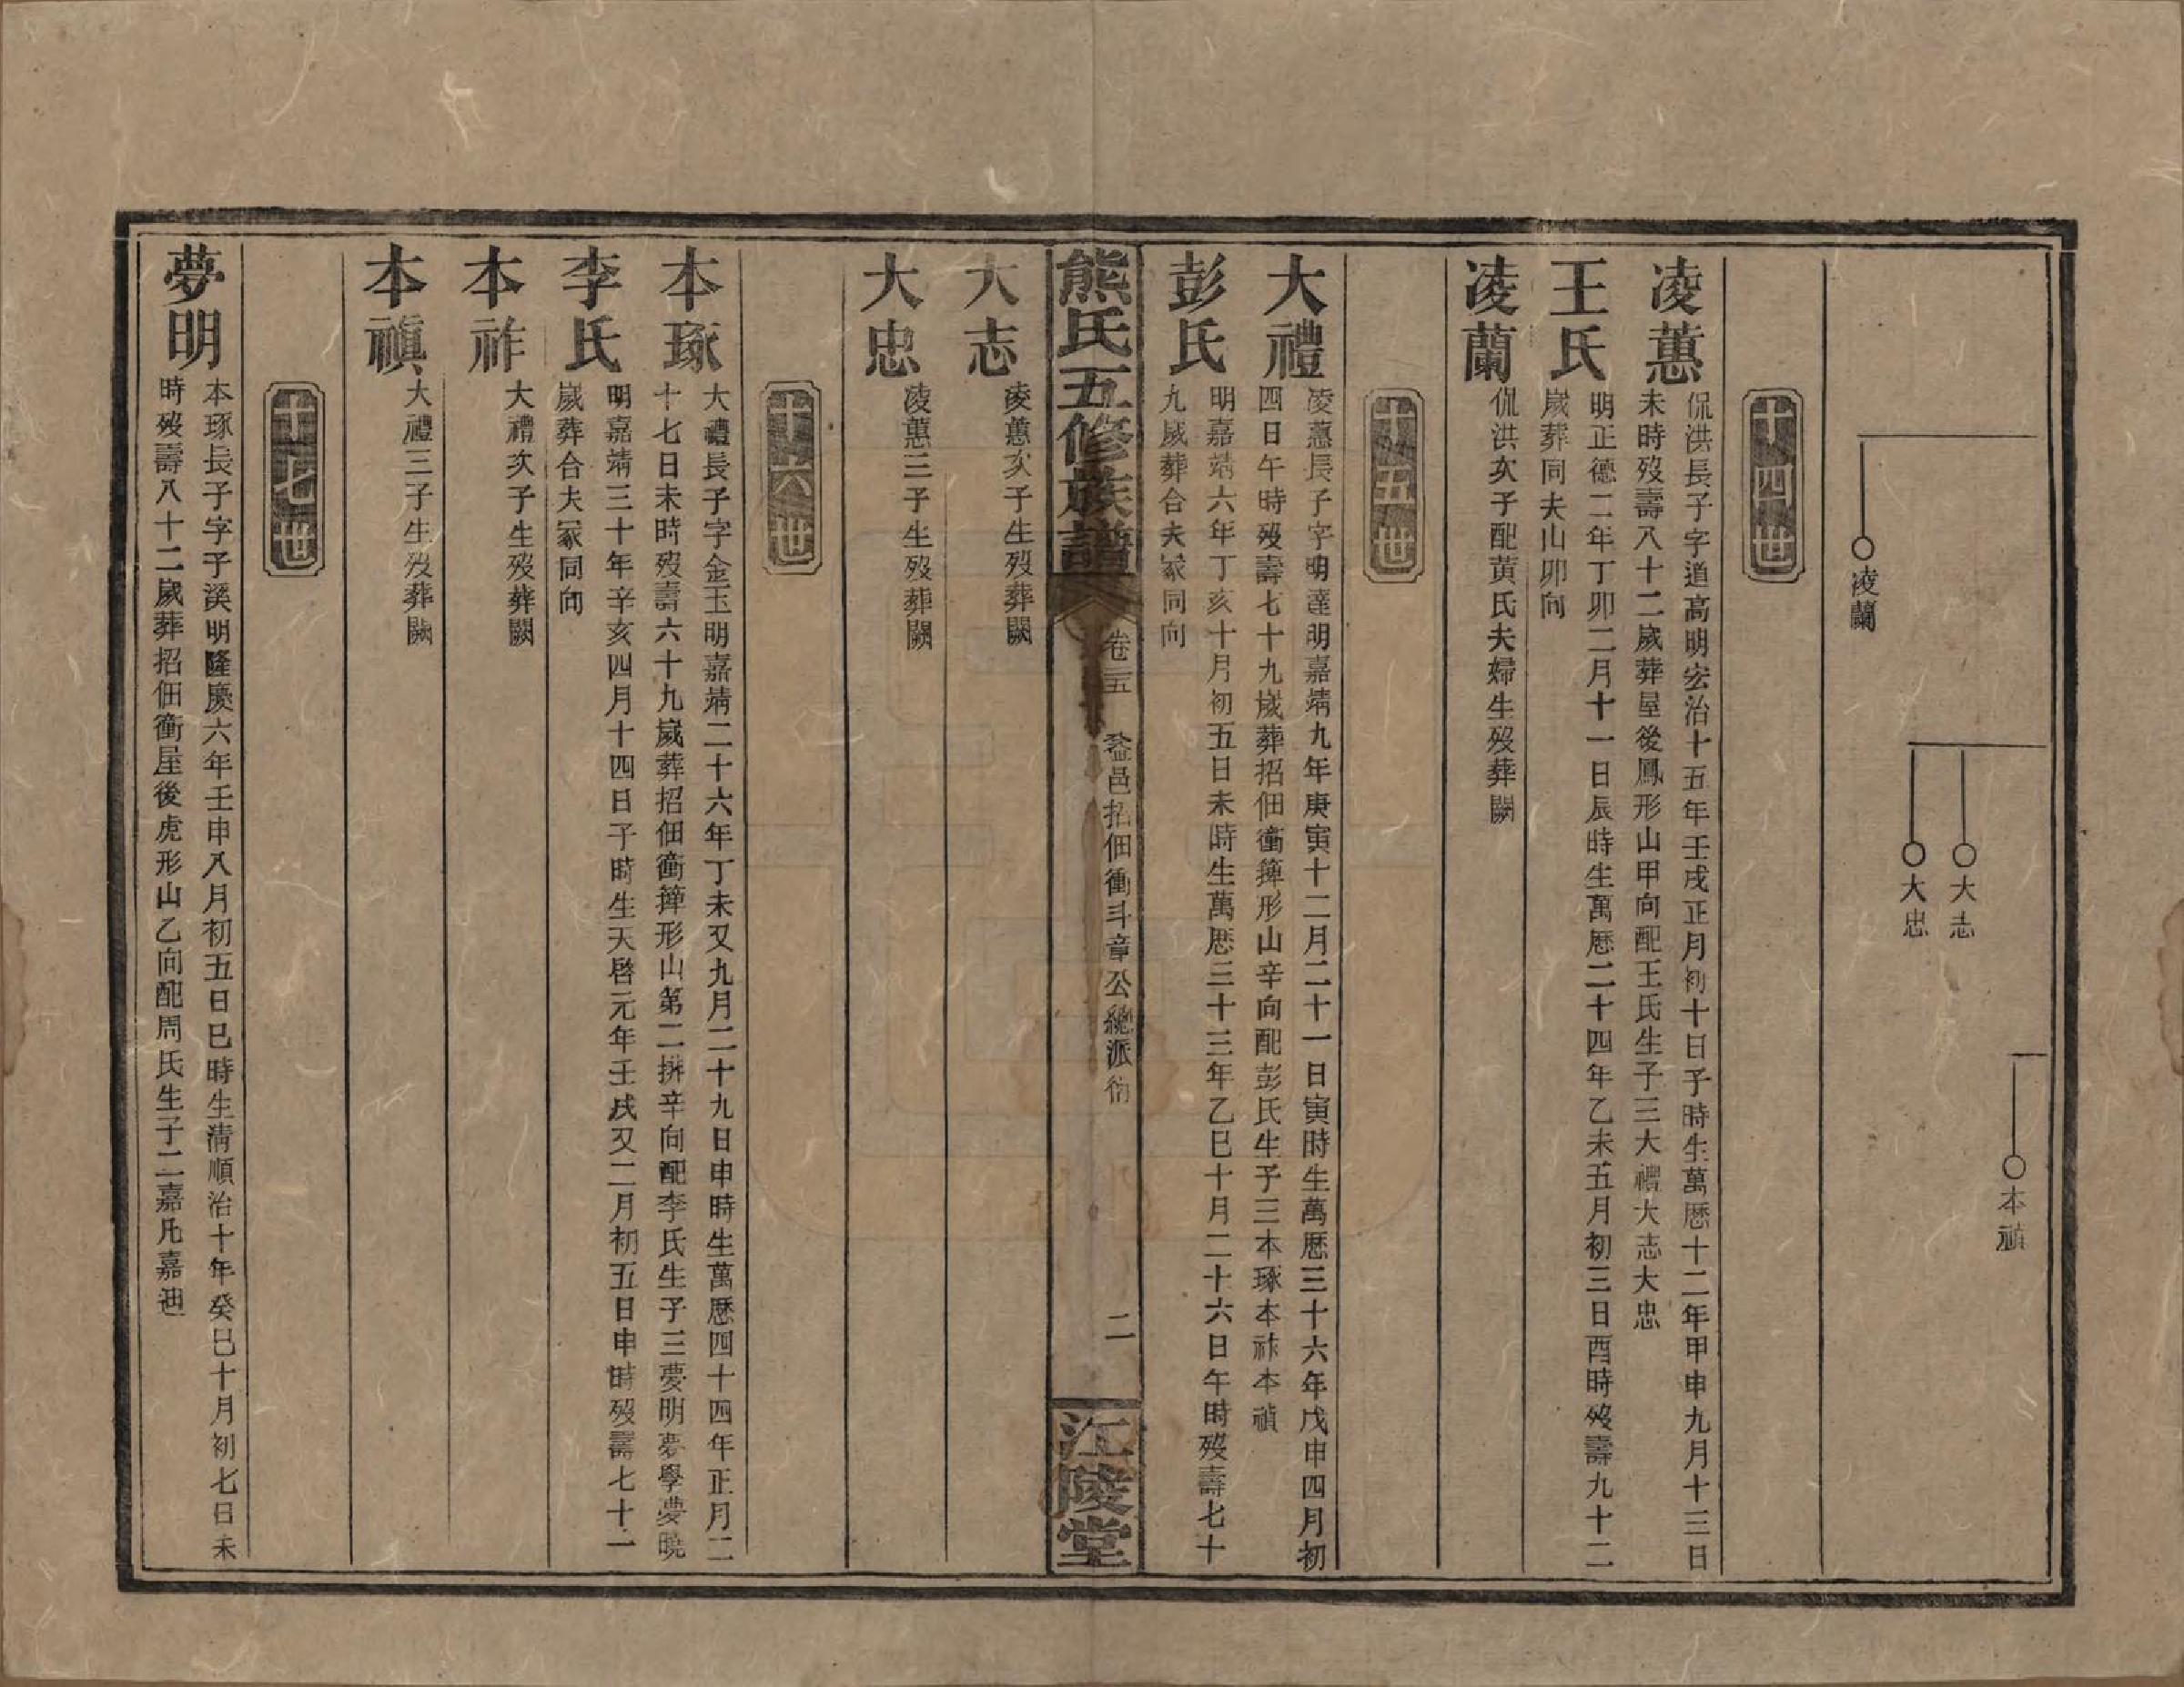 本禎
大志
大忠
凌蘭
十四世
凌蕙
侃洪長子字道高明宏治十五年壬戌正月初十日子時生萬歷十二年甲申九月十三日
未時歿壽八十二歲葬屋後鳳形山甲向配王氏生子三大禮大志大忠
王氏
明正德二年丁卯二月十一日辰時生萬歷二十四年乙未五月初三日酉時歿壽九十二
歲葬同夫山卯向
凌蘭
侃洪次子配黄氏夫婦生歿葬闕
十五世
大禮
凌蕙長子字明達明嘉靖九年庚寅十二月二十一日寅時生萬歷三十六年戊申四月初
四日午時歿壽七十九歲葬招佃衝簰形山辛向配彭氏生子三本琢本祚本禎
彭氏
明嘉靖六年丁亥十月初五日未時生萬歷三十三年乙巳十月二十六日午時歿壽七十
九歲葬合夫冢同向
熊氏五修族譜
卷三五
益邑招佃衝斗章公總派衍
二
江陵堂
大志
凌蕙次子生歿葬闕
大忠
凌蕙三子生歿葬闕
十六世
本琢
大禮長子字金玉明嘉靖二十六年丁未又九月二十九日申時生萬歷四十四年正月二
十七日未時歿壽六十九歲葬招佃衝簰形山第二排辛向配李氏生子三夢明夢學夢曉
李氏
明嘉靖三十年辛亥四月十四日子時生天啓元年壬戌又二月初五日申時歿壽七十一
歲葬合夫冢同向
本祚
大禮次子生歿葬闕
本禎
大禮三子生歿葬闕
十七世
夢明
本琢長子字子溪明隆慶六年壬申八月初五日巳時生清順治十年癸巳十月初七日未
時歿壽八十二歲葬招佃衝屋後虎形山乙向配周氏生子二嘉凡嘉迎